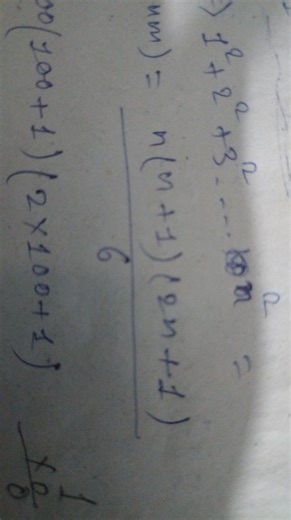 ⇒ 1² + 2² + 3² .... n² =
um) = n(n+1)(2n+1)
6
00(100+1)(2×100+1)